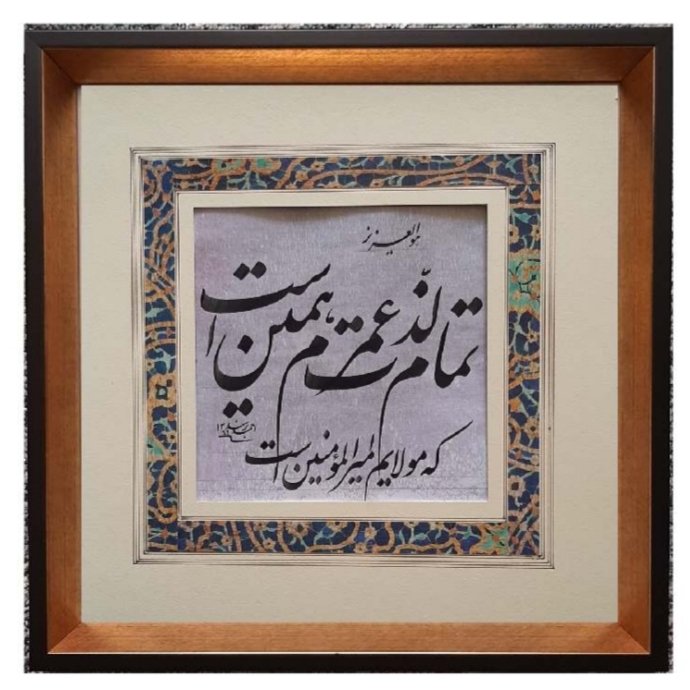 هو العزیز
تمام لذت عمرم همین است
که مولایم امیرالمؤمنین است